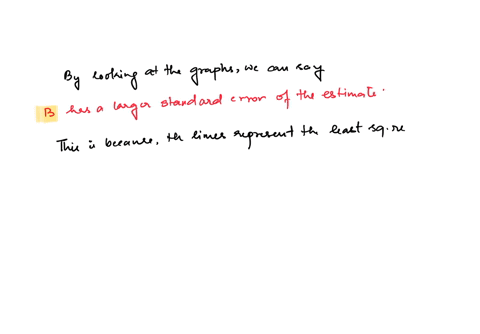 By looking at the graphs, we can say
B has a larger standard error of the estimate.
This is because, th lines represent th least sq. re